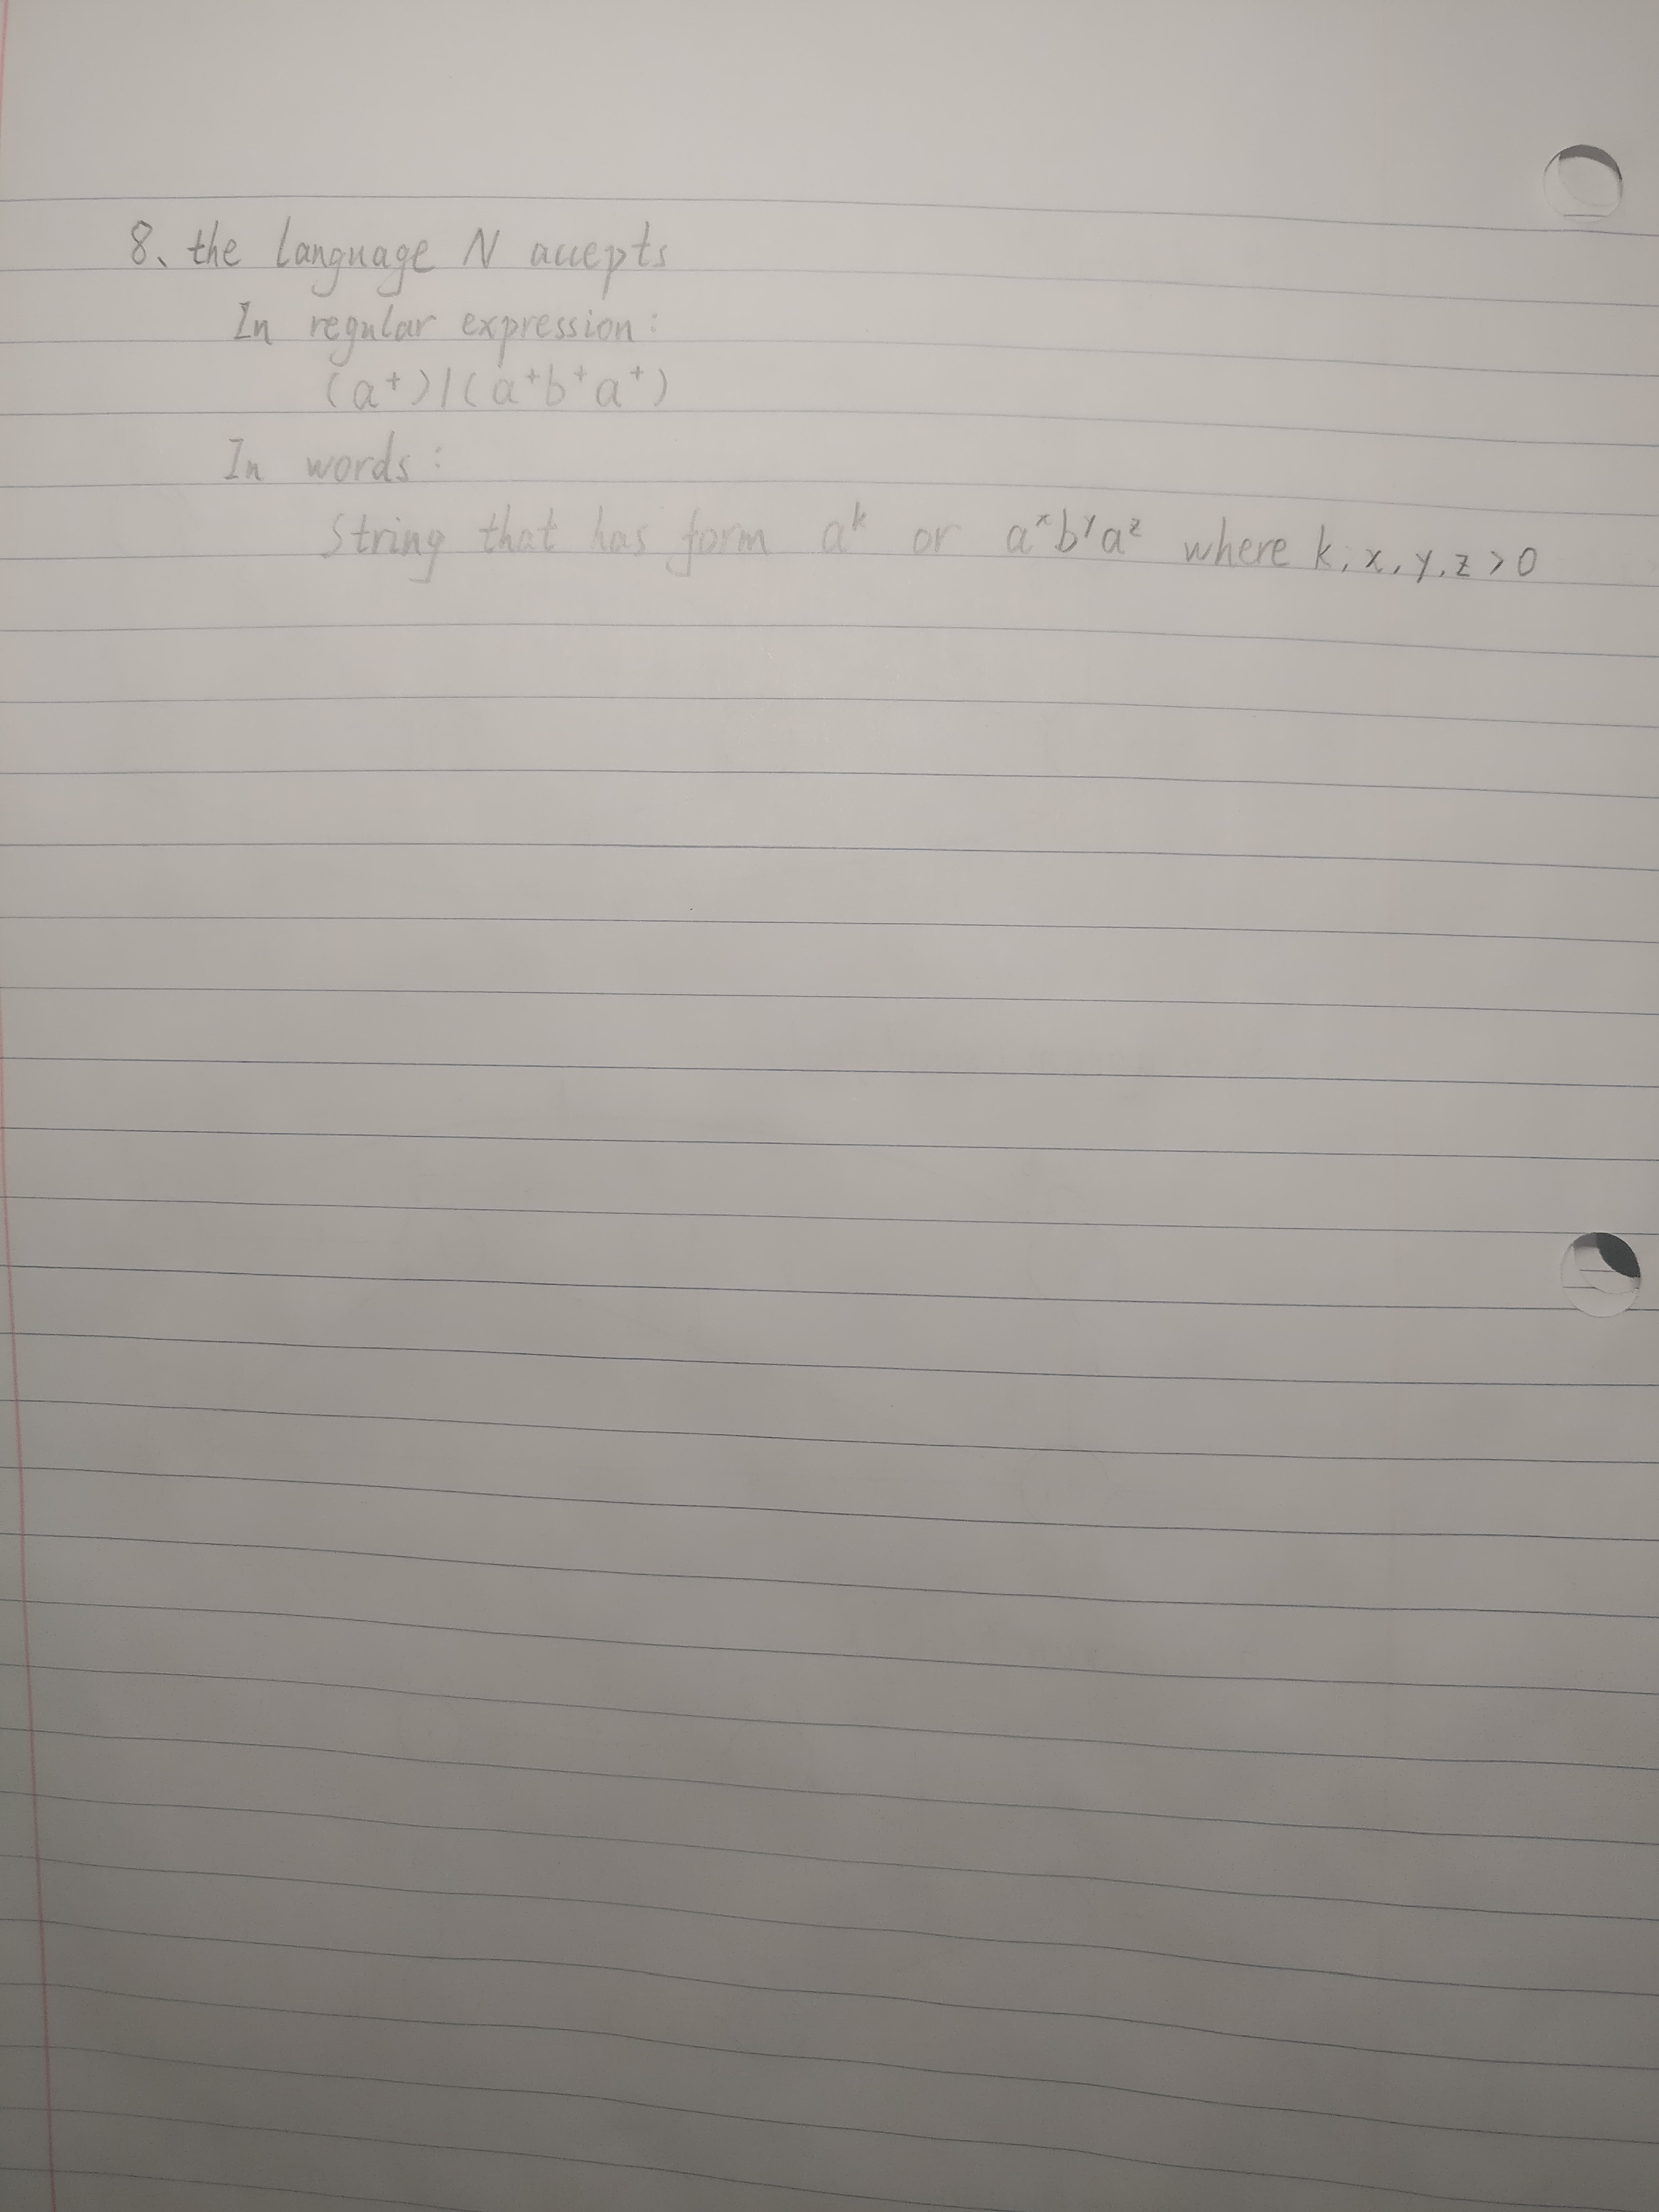 8、the language N accepts
In regular expression:
(a⁺)|(a⁺b⁺a⁺)
In words:
String that has form aᵏ or aˣbʸaᶻ where k, x, y, z > 0